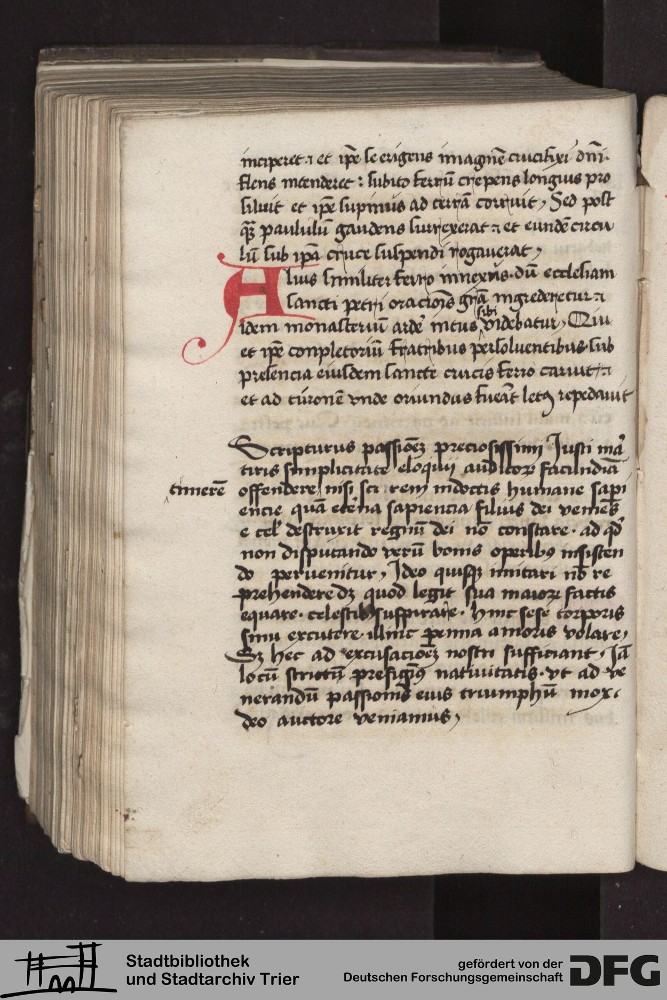 inciperet · et ip̄e se erigens imaginē crucifixi dn̄i ·
flens intenderet : subito ferrū crepens longius pro
siluit et ip̄e supinus ad terrā corruit , Sed post
paululū gaudens surrexerat · et eundē circu
lū sub ip̄a cruce suspendi rogauerat ,
Alius similiter ferro innexus · dum ecclesiam
sancti petri oracionis grā ingrederetur ·
idem monasteriū ardē intus sibi videbatur , Qui
et ip̄e conpletoriū fratribus persoluentibus sub
presencia eiusdem sancte crucis ferro caruit ·
et ad turonē vnde oriundus fuerat letus repedauit
Scripturus passionē preciosissimi Iusti mar
tiris simplicitate eloquii auditorū facundiā
timerē
offendere nisi sci rem indoctis humane sapi
encie quā eterna sapiencia filius dei veniens
e cel destruxit regnū dei nō constare · ad qd̄
non disputando verū bonis operibꝫ insisten
do peruenitur , Ideo quisqꝫ imitari nō re
prehendere dꝫ quod legit sua maiorū factis
equare · celestibꝫ suspirare · hinc sese corporis
sinu excutere · illinc penna amoris volare ,
Sꝫ hec ad excusacionē nostri sufficiant , Iā
locū strictū prefigimꝫ natiuitatis · vt ad ve
nerandū passionis eius triumphū mox ·
deo auctore veniamus ,
Stadtbibliothek
und Stadtarchiv Trier
gefördert von der
Deutschen Forschungsgemeinschaft
DFG